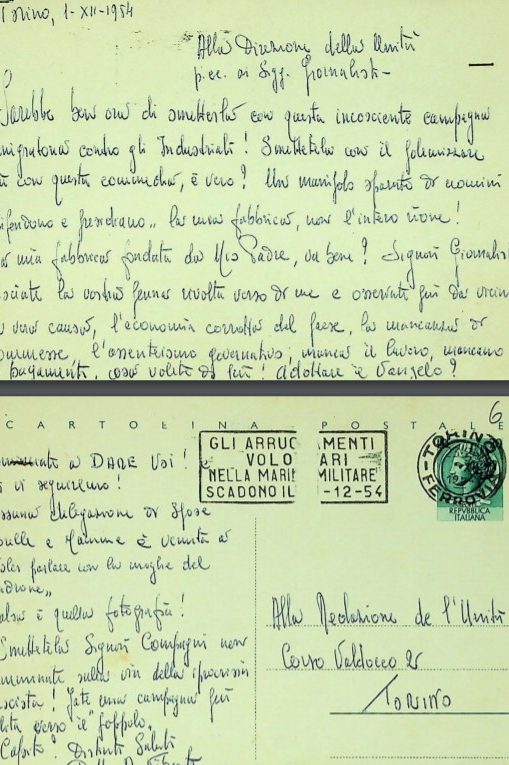 Torino, 1-XII-1954
Alla Direzione della Unità
p.cc. ai Sigg. Giornalisti-
Sarebbe ben ora di smetterla con questa incosciente campagna
denigratoria contro gli Industriali! Smettetela con il
con questa commedia, è vero? Un manipolo sparuto di uomini
difendono e presidiano,, la mia fabbrica, non l'intero rione!
mia fabbrica fondata da Mio Padre, va bene? Signori Giornalisti
lasciate la vostra penna rivolta verso di me e osservate più da vicino
vera causa, l'economia corrotta del paese, la mancanza di
commesse, l'assenteismo governativo, manca il lavoro, mancano
pagamenti, cosa volete di più! adottare il Vangelo?
CARTOLINA POSTALE
6
a DARE Voi! e
vi seguiremo!
nessuna delegazione di Spose
e Mamme è venuta a
voler parlare con la moglie del
padrone,,
falsa è quella fotografia!
Smettetela Signori Compagni non
camminate sulla via della ipocrisia
fascista! Fate una campagna più
verso il popolo.
Capito? Distinti Saluti
GLI ARRUO AMENTI
VOLO ARI
NELLA MARI MILITARE
SCADONO IL -12-54
TORINO
FERROVIA
REPUBBLICA
ITALIANA
Alla Redazione de l'Unità
Corso Valdocco 2
TORINO